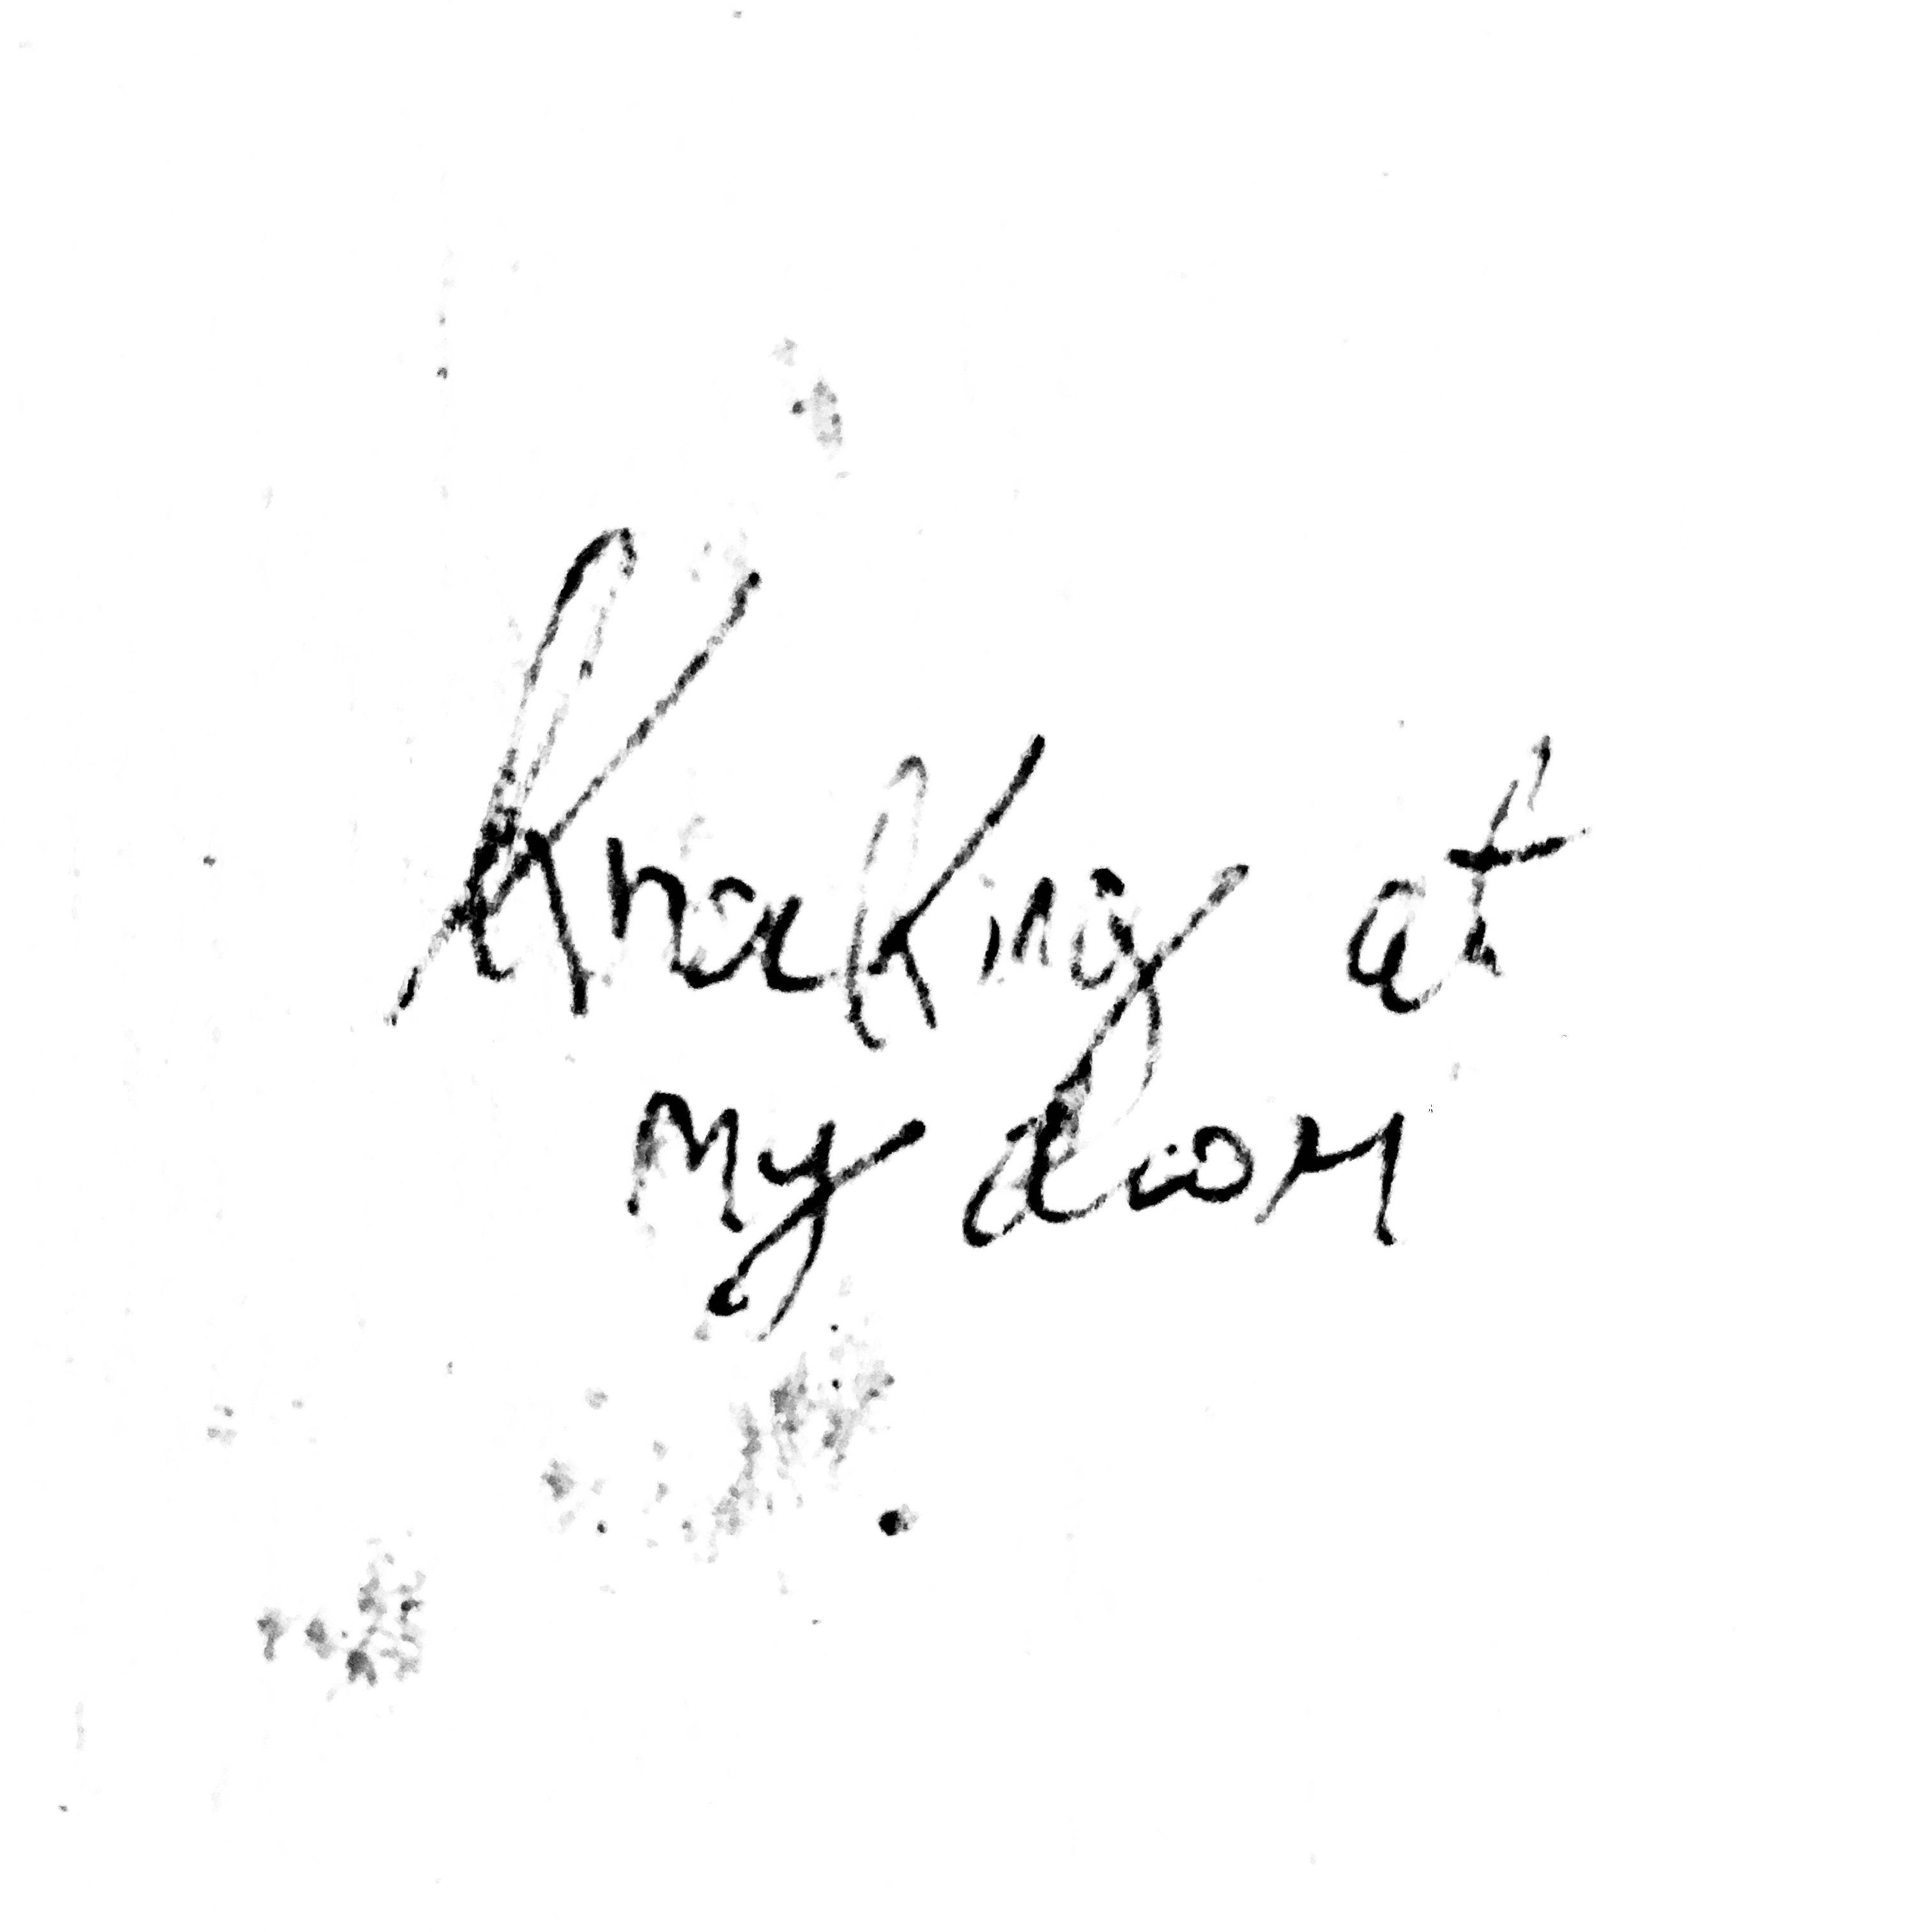 Knocking at
my door